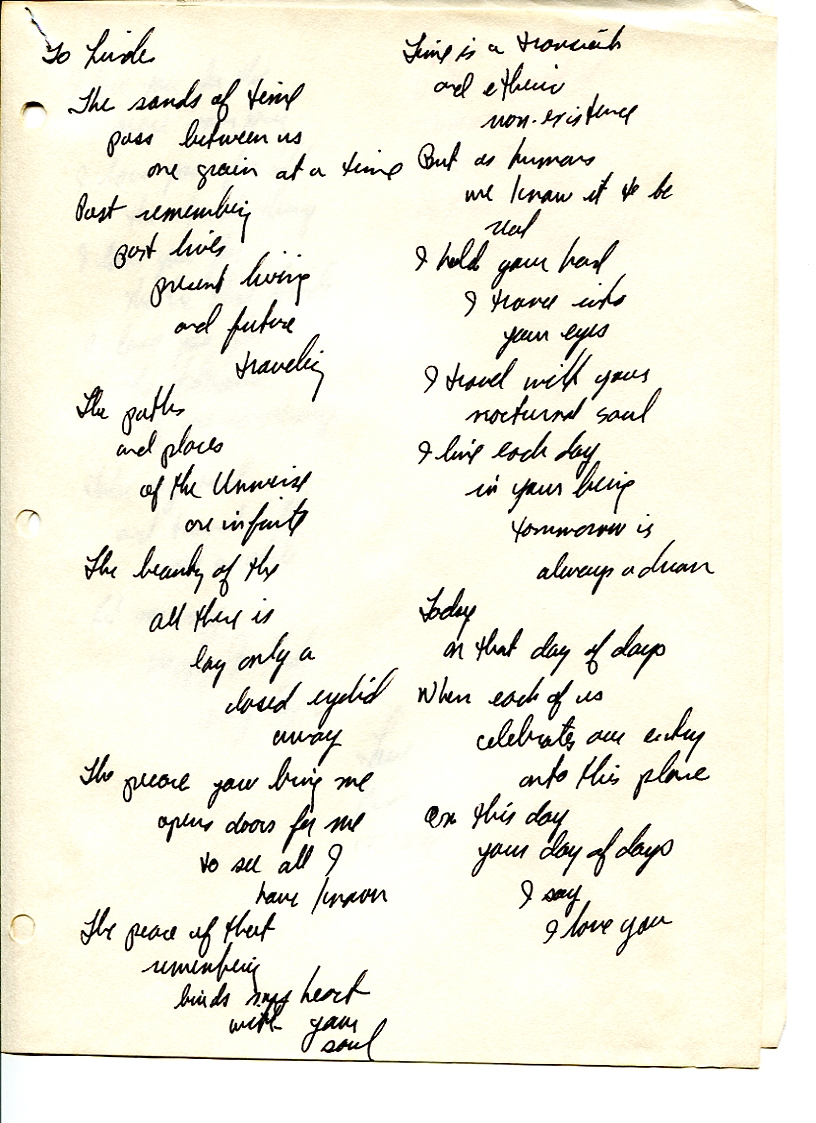 To Linda
The sands of time
pass between us
one grain at a time
Past remembering
past lives
present living
and future
traveling
The paths
and places
of the Universe
are infinite
The beauty of the
all there is
lay only a
closed eyelid
away
The peace you bring me
opens doors for me
to see all I
have known
The peace of that
remembering
binds my heart
with your
soul
Time is a
and
non-existence
But as humans
we know it to be
real
I hold your hand
I travel into
your eyes
I travel with your
nocturnal soul
I live each day
in your being
tommorrow is
always a dream
Today
on that day of days
When each of us
celebrates our entry
onto this plane
On this day
your day of days
I say
I love you